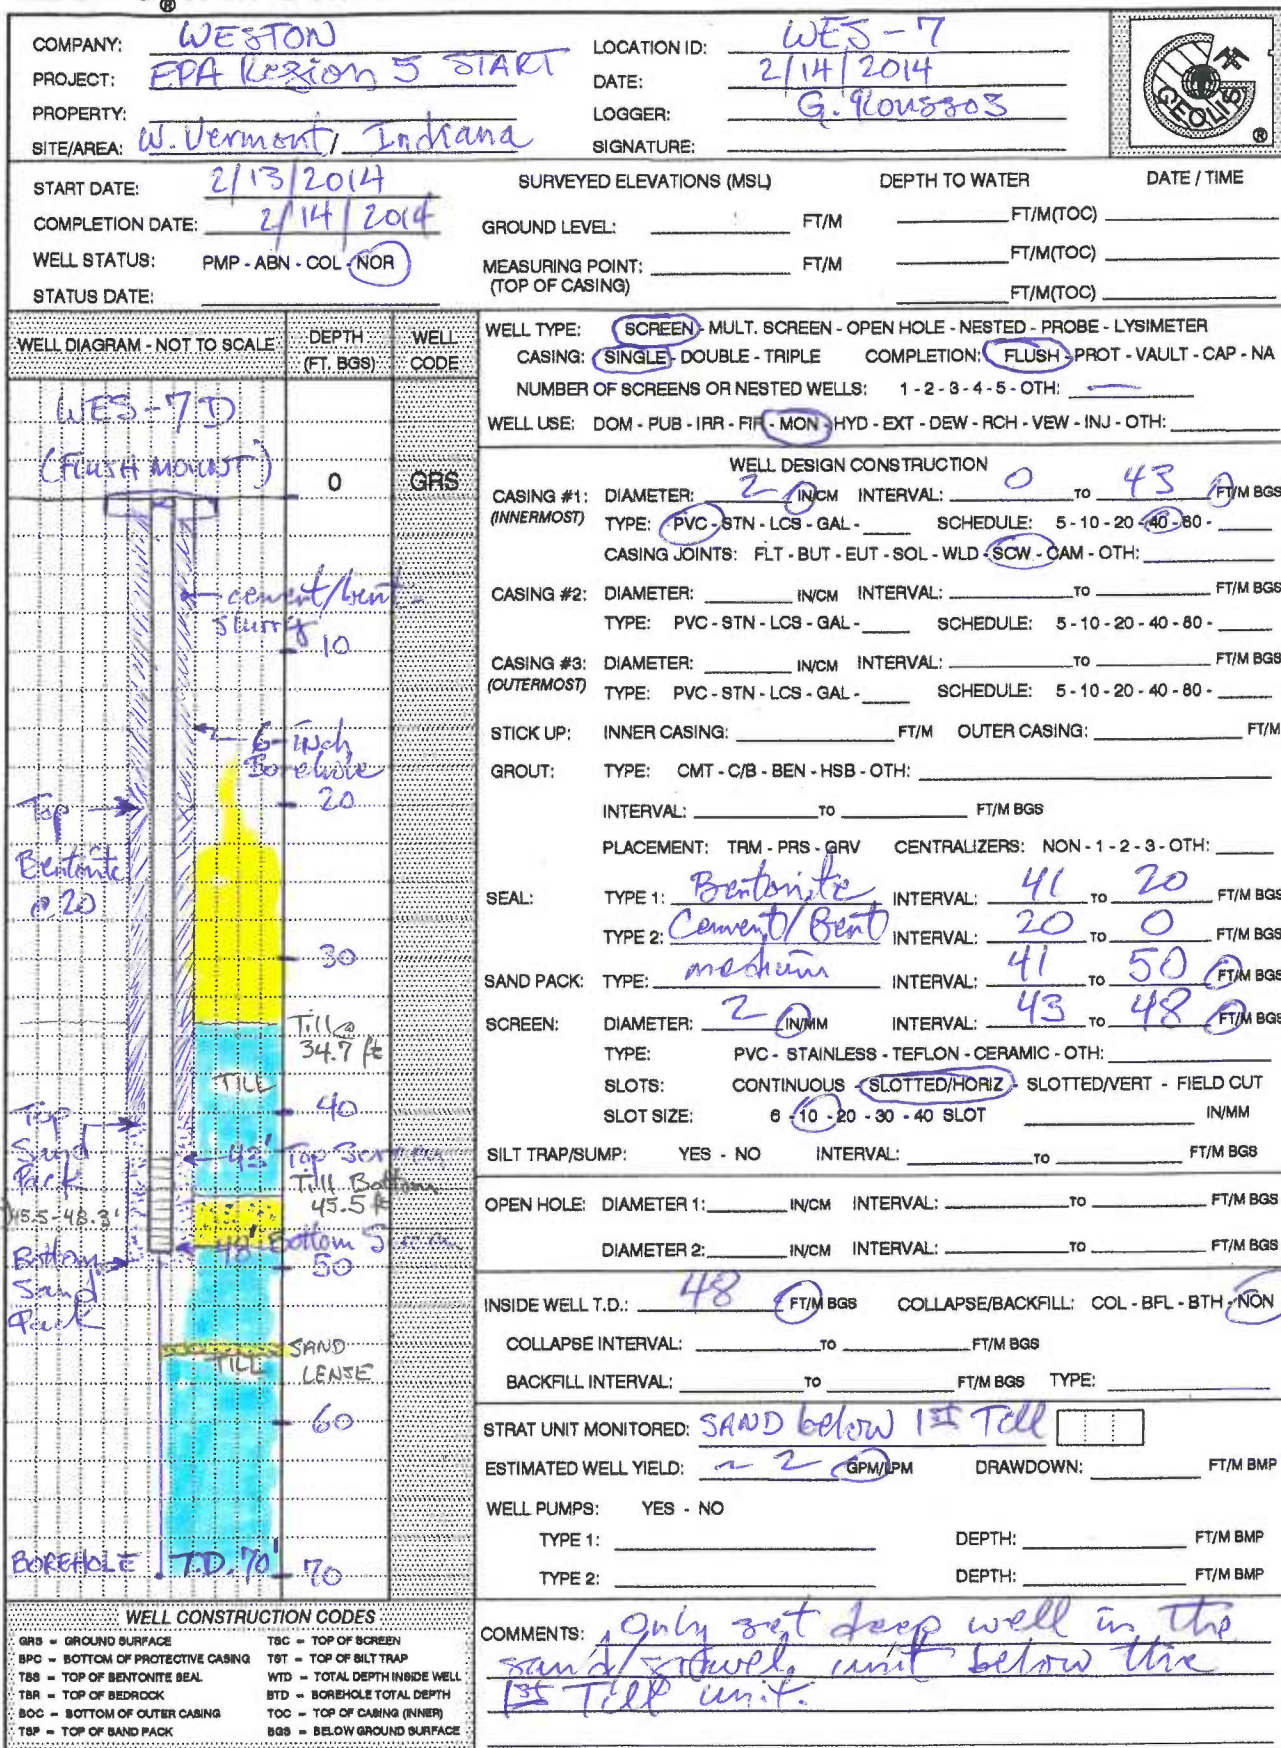 ®
COMPANY: WESTON
PROJECT: EPA Region 5 START
PROPERTY:
SITE/AREA: W. Vermont, Indiana
LOCATION ID: WES-7
DATE: 2/14/2014
LOGGER: G. Roussos
SIGNATURE:
GEOLIS ®
START DATE: 2/13/2014
COMPLETION DATE: 2/14/2014
WELL STATUS: PMP - ABN - COL - NOR
STATUS DATE:
SURVEYED ELEVATIONS (MSL) DEPTH TO WATER DATE / TIME
GROUND LEVEL: FT/M FT/M(TOC)
MEASURING POINT: FT/M FT/M(TOC)
(TOP OF CASING) FT/M(TOC)
WELL DIAGRAM - NOT TO SCALE DEPTH (FT. BGS) WELL CODE
WES-7D
(FLUSH MOUNT)
0 GRS
cement/bent
slurry
10
6-inch
Borehole
20
Top
Bentonite
@ 20
30
Till @
34.7 ft
TILL
40
Top
Sand
Pack
43' Top Screen
Till Bottom
45.5 ft
45.5-48.3'
48' Bottom Screen
50
Bottom
Sand
Pack
SAND
LENSE
TILL
60
BOREHOLE T.D. 70' 70
WELL CONSTRUCTION CODES
GRS = GROUND SURFACE TSC = TOP OF SCREEN
BPC = BOTTOM OF PROTECTIVE CASING TST = TOP OF SILT TRAP
TBS = TOP OF BENTONITE SEAL WTD = TOTAL DEPTH INSIDE WELL
TBR = TOP OF BEDROCK BTD = BOREHOLE TOTAL DEPTH
BOC = BOTTOM OF OUTER CASING TOC = TOP OF CASING (INNER)
TSP = TOP OF SAND PACK BGS = BELOW GROUND SURFACE
WELL TYPE: SCREEN - MULT. SCREEN - OPEN HOLE - NESTED - PROBE - LYSIMETER
CASING: SINGLE - DOUBLE - TRIPLE COMPLETION: FLUSH - PROT - VAULT - CAP - NA
NUMBER OF SCREENS OR NESTED WELLS: 1 - 2 - 3 - 4 - 5 - OTH: —
WELL USE: DOM - PUB - IRR - FIR - MON - HYD - EXT - DEW - RCH - VEW - INJ - OTH:
WELL DESIGN CONSTRUCTION
CASING #1: DIAMETER: 2 IN/CM INTERVAL: 0 TO 43 FT/M BGS
(INNERMOST) TYPE: PVC - STN - LCS - GAL - SCHEDULE: 5 - 10 - 20 - 40 - 80 -
CASING JOINTS: FLT - BUT - EUT - SOL - WLD - SCW - CAM - OTH:
CASING #2: DIAMETER: IN/CM INTERVAL: TO FT/M BGS
TYPE: PVC - STN - LCS - GAL - SCHEDULE: 5 - 10 - 20 - 40 - 80 -
CASING #3: DIAMETER: IN/CM INTERVAL: TO FT/M BGS
(OUTERMOST) TYPE: PVC - STN - LCS - GAL - SCHEDULE: 5 - 10 - 20 - 40 - 80 -
STICK UP: INNER CASING: FT/M OUTER CASING: FT/M
GROUT: TYPE: CMT - C/B - BEN - HSB - OTH:
INTERVAL: TO FT/M BGS
PLACEMENT: TRM - PRS - GRV CENTRALIZERS: NON - 1 - 2 - 3 - OTH:
SEAL: TYPE 1: Bentonite INTERVAL: 41 TO 20 FT/M BGS
TYPE 2: Cement/Bent INTERVAL: 20 TO 0 FT/M BGS
SAND PACK: TYPE: medium INTERVAL: 41 TO 50 FT/M BGS
SCREEN: DIAMETER: 2 IN/MM INTERVAL: 43 TO 48 FT/M BGS
TYPE: PVC - STAINLESS - TEFLON - CERAMIC - OTH:
SLOTS: CONTINUOUS - SLOTTED/HORIZ - SLOTTED/VERT - FIELD CUT
SLOT SIZE: 6 - 10 - 20 - 30 - 40 SLOT IN/MM
SILT TRAP/SUMP: YES - NO INTERVAL: TO FT/M BGS
OPEN HOLE: DIAMETER 1: IN/CM INTERVAL: TO FT/M BGS
DIAMETER 2: IN/CM INTERVAL: TO FT/M BGS
INSIDE WELL T.D.: 48 FT/M BGS COLLAPSE/BACKFILL: COL - BFL - BTH - NON
COLLAPSE INTERVAL: TO FT/M BGS
BACKFILL INTERVAL: TO FT/M BGS TYPE:
STRAT UNIT MONITORED: SAND below 1st Till
ESTIMATED WELL YIELD: ~ 2 GPM/LPM DRAWDOWN: FT/M BMP
WELL PUMPS: YES - NO
TYPE 1: DEPTH: FT/M BMP
TYPE 2: DEPTH: FT/M BMP
COMMENTS: Only set deep well in the
sand/gravel unit below the
1st Till unit.